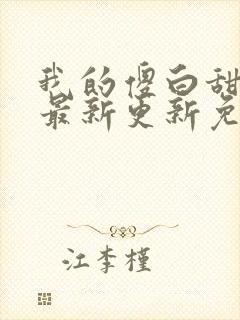 我的傻白甜
最新更新免
江李槿